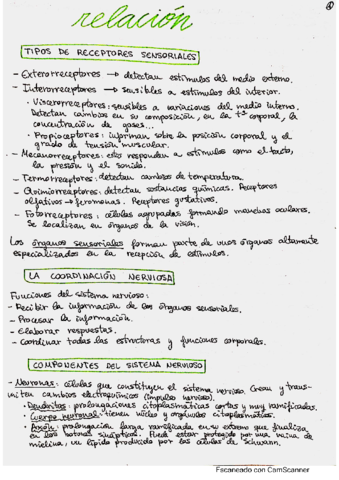 relación
TIPOS DE RECEPTORES SENSORIALES
- Exterorreceptores → detectan estímulos del medio externo.
- Interorreceptores → sensibles a estímulos del interior.
· Viscerorreceptores: sensibles a variaciones del medio interno.
Detectan cambios en su composición, en la tª corporal, la
concentración de gases...
· Propioceptores: informan sobre la posición corporal y el
grado de tensión muscular.
- Mecanorreceptores: estos responden a estímulos como el tacto,
la presión y el sonido.
- Termorreceptores: detectan cambios de temperatura.
- Quimiorreceptores: detectan sustancias químicas. Receptores
olfativos → feromonas. Receptores gustativos.
- Fotorreceptores: células agrupadas formando manchas oculares.
Se localizan en órganos de la visión.
Los órganos sensoriales forman parte de unos órganos altamente
especializados en la recepción de estímulos.
LA COORDINACIÓN NERVIOSA
Funciones del sistema nervioso:
- Recibir la información de los órganos sensoriales.
- Procesar la información.
- Elaborar respuestas.
- Coordinar todas las estructuras y funciones corporales.
COMPONENTES DEL SISTEMA NERVIOSO
- Neuronas: células que constituyen el sistema nervioso. Crean y trans-
miten cambios electroquímicos (impulso nervioso).
· Dendritas: prolongaciones citoplasmáticas cortas y muy ramificadas.
· Cuerpo neuronal: tienen núcleo y orgánulos citoplasmáticos.
· Axón: prolongación larga, ramificada en su extremo que finaliza
en los botones sinápticos. Puede estar protegido por una vaina de
mielina, un lípido producido por las células de Schwann.
Escaneado con CamScanner